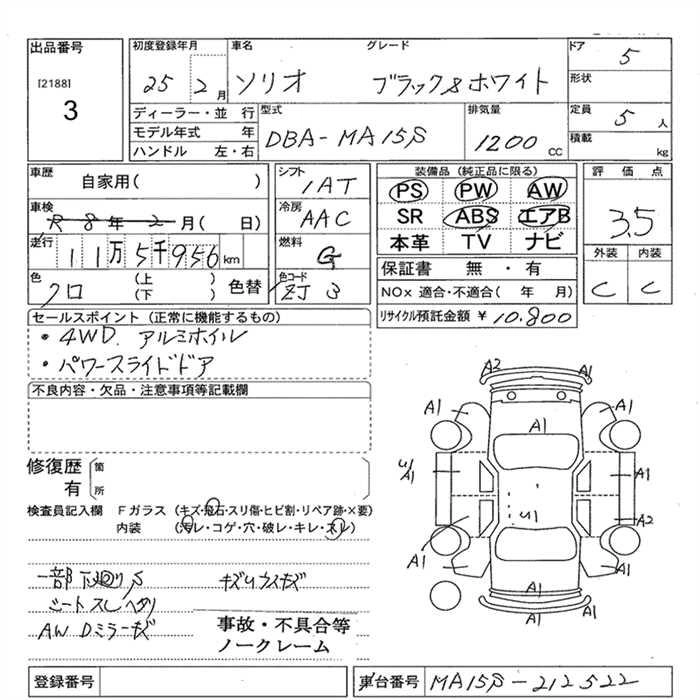 出品番号
[2188]
3
初度登録年月
25 2月
車名
ソリオ
グレード
ブラック&ホワイト
ドア
5
形状
ディーラー・並 行
モデル年式 年
ハンドル 左・右
型式
DBA-MA15S
排気量
1200 cc
定員
5 人
積載
kg
車歴
自家用( )
シフト
IAT
装備品 (純正品に限る)
PS PW AW
SR ABS エアB
本革 TV ナビ
評 価 点
3.5
車検
R 8年 2月( 日)
冷房
AAC
走行
11万5千956km
燃料
G
外装 内装
C C
色
クロ
(上 )
(下 )
色替
色コード
ZJ3
保証書 無 ・ 有
NOx 適合・不適合( 年 月)
リサイクル預託金額 ¥ 10,800
セールスポイント (正常に機能するもの)
・4WD. アルミホイル
・パワースライドドア
不良内容・欠品・注意事項等記載欄
修復歴
有
箇
所
検査員記入欄
Fガラス (キズ・飛石・スリ傷・ヒビ割・リペア跡・×要)
内装 (汚レ・コゲ・穴・破レ・キレ・スレ)
一部下廻りS
キズ
シートスレヘタリ
AW Dミラーキズ
事故・不具合等
ノークレーム
A2
A1
A1
A1
A1
U1
A1
A1
A2
U1
A1
A1
A1
A1
登録番号
車台番号
MA15S-212522